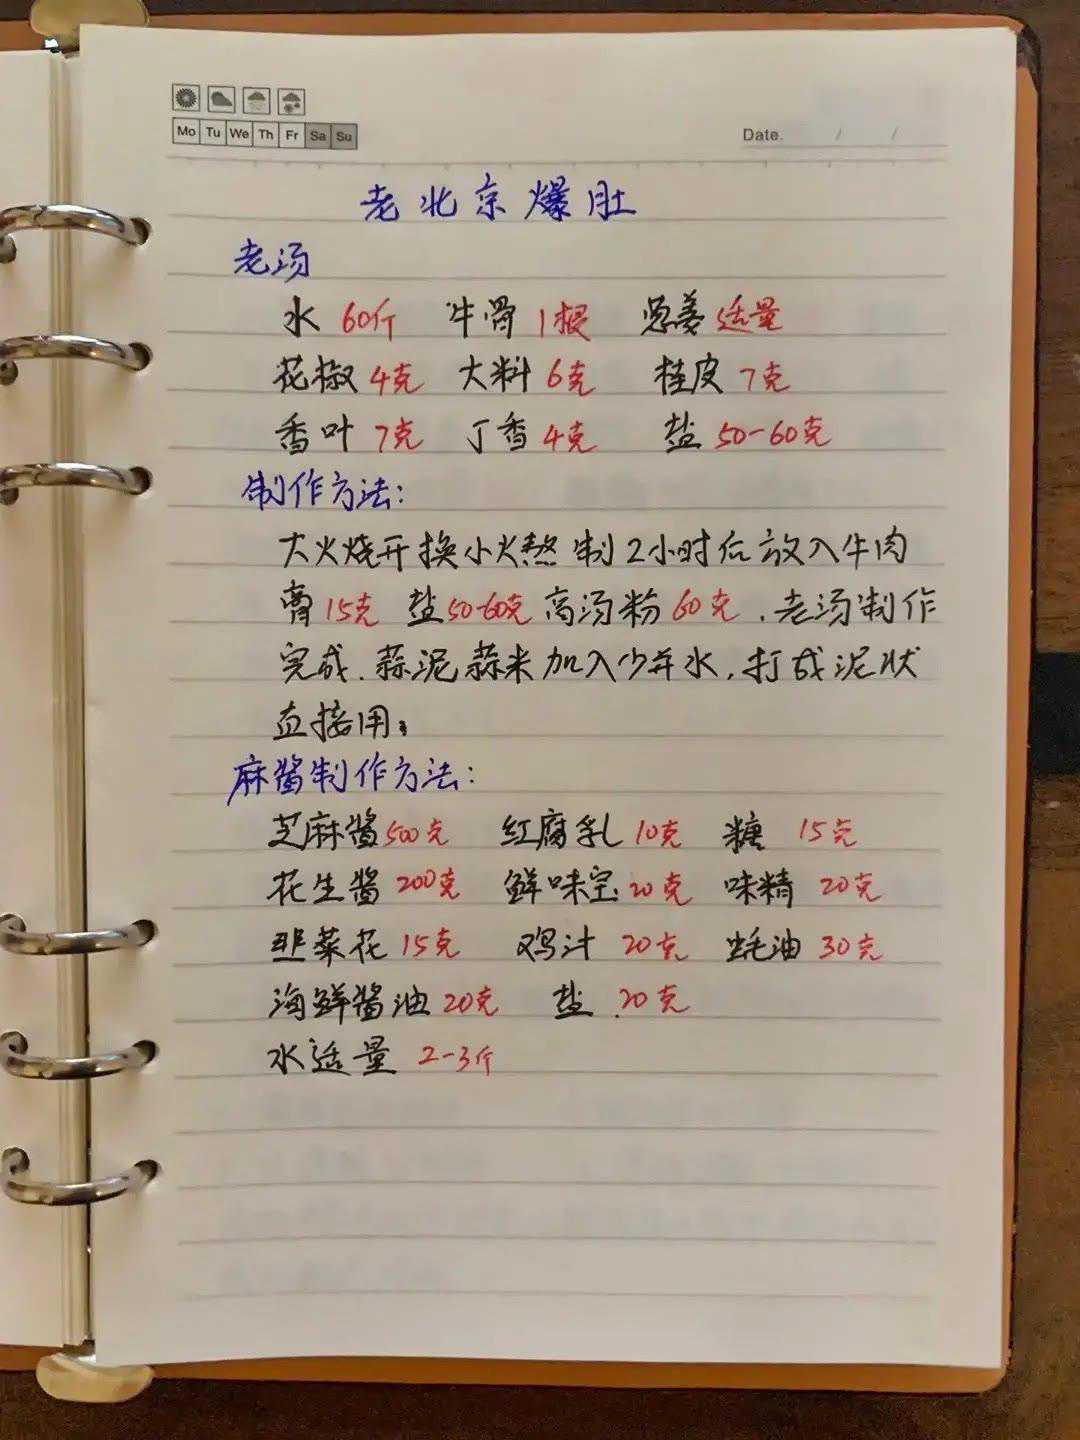 Mo Tu We Th Fr Sa Su
Date. / /
老北京爆肚
老汤
水 60斤 牛骨 1根 葱姜 适量
花椒 4克 大料 6克 桂皮 7克
香叶 7克 丁香 4克 盐 50-60克
制作方法:
大火烧开换小火熬制2小时后放入牛肉
膏15克 盐50-60克 高汤粉60克.老汤制作
完成.蒜泥蒜米加入少许水,打成泥状
直接用。
麻酱制作方法:
芝麻酱500克 红腐乳 10克 糖 15克
花生酱 200克 鲜味宝20克 味精 20克
韭菜花 15克 鸡汁 20克 蚝油 30克
海鲜酱油20克 盐 20克
水适量 2-3斤